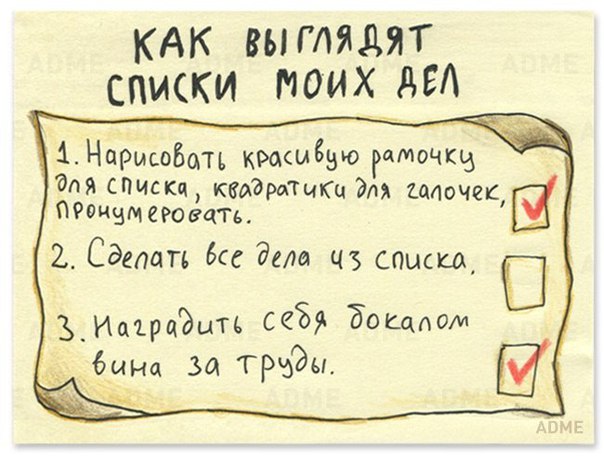 КАК ВЫГЛЯДЯТ
СПИСКИ МОИХ ДЕЛ
1. Нарисовать красивую рамочку
для списка, квадратики для галочек,
пронумеровать.
2. Сделать все дела из списка.
3. Наградить себя бокалом
вина за труды.
ADME